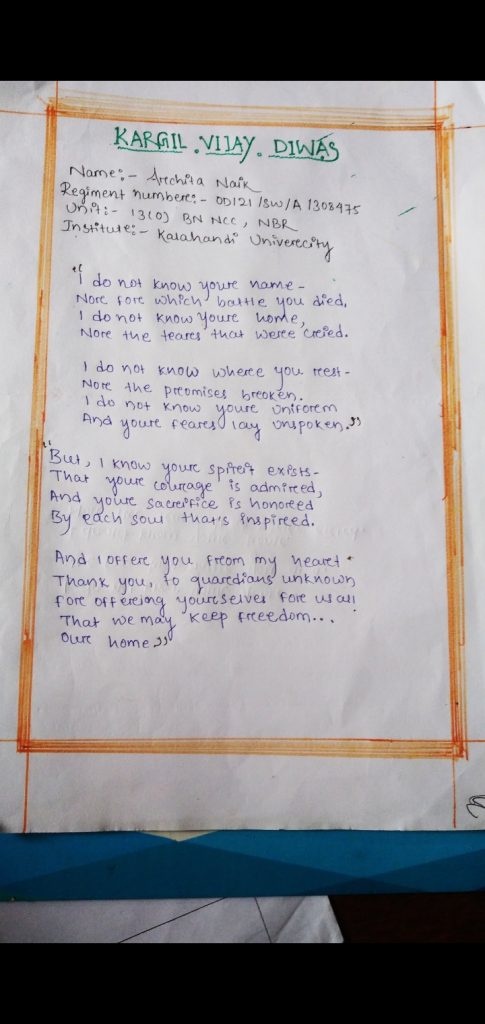 KARGIL . VIJAY . DIWAS
Name:- Archita Naik
Regiment number:- OD121/SW/A/1308475
Unit:- 13(O) BN NCC, NBR
Institute:- Kalahandi Univercity
"I do not know your name -
Nor for which battle you died,
I do not know your home,
Nor the tears that were cried.
I do not know where you rest -
Nor the promises broken.
I do not know your uniform
And your fears lay unspoken."
"But, I know your spirit exists -
That your courage is admired,
And your sacrifice is honored
By each soul that's inspired.
And I offer you, from my heart
Thank you, to guardians unknown
For offering yourselves for us all
That we may keep freedom...
Our home"